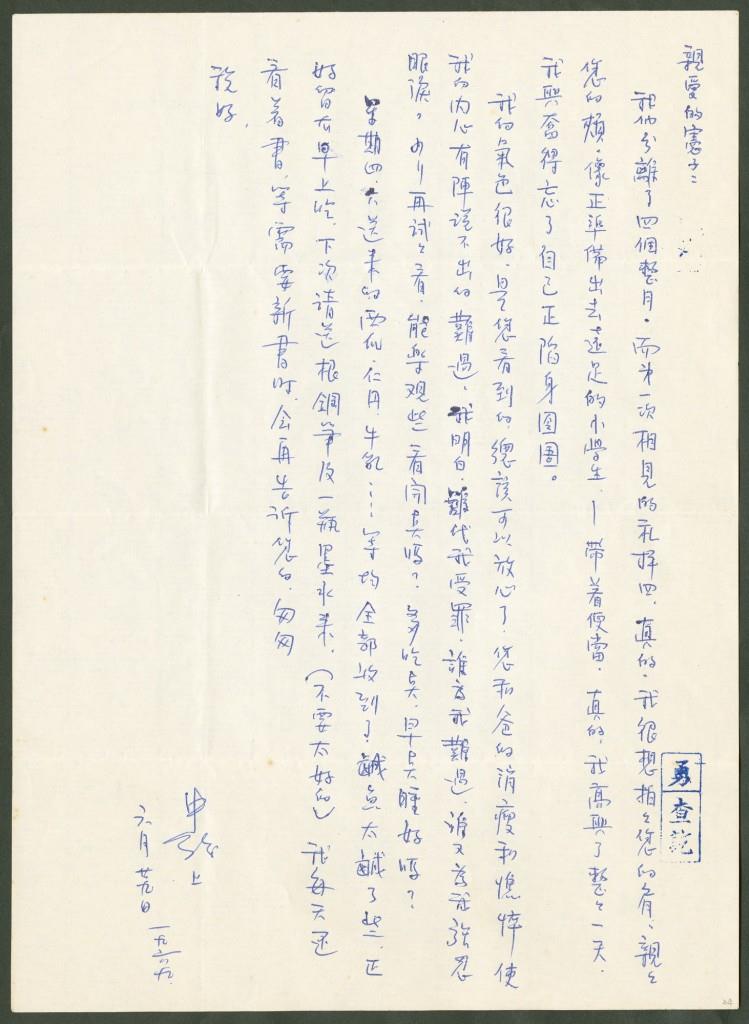 親愛的憲子：
我們分離了四個整月。而第一次相見的禮拜四，真的，我很想拍々您的肩、親々
您的頰，像正準備出去遠足的小學生，－帶着便當。真的，我高興了整々一天，
我興奮得忘了自己正陷身囹圄。
我的氣色很好，是您看到的，總該可以放心了，您和爸的消瘦和憔悴使
我的內心有陣說不出的難過，我明白，誰代我受罪，誰為我難過，誰又為我強忍
眼淚？再試々看，能樂觀些看開点嗎？多吃点，早点睡好嗎？
星期四，送來的西瓜，仁丹，牛乳……等均全部收到了，鹹魚太鹹了些，正
好留在早上吃，下次請送根鋼筆及一瓶墨水來，（不要太好的）我每天還
看着書，等需要新書時，會再告訴您的，匆匆
祝好，
上
六月廿九日 一九六九
勇
查訖